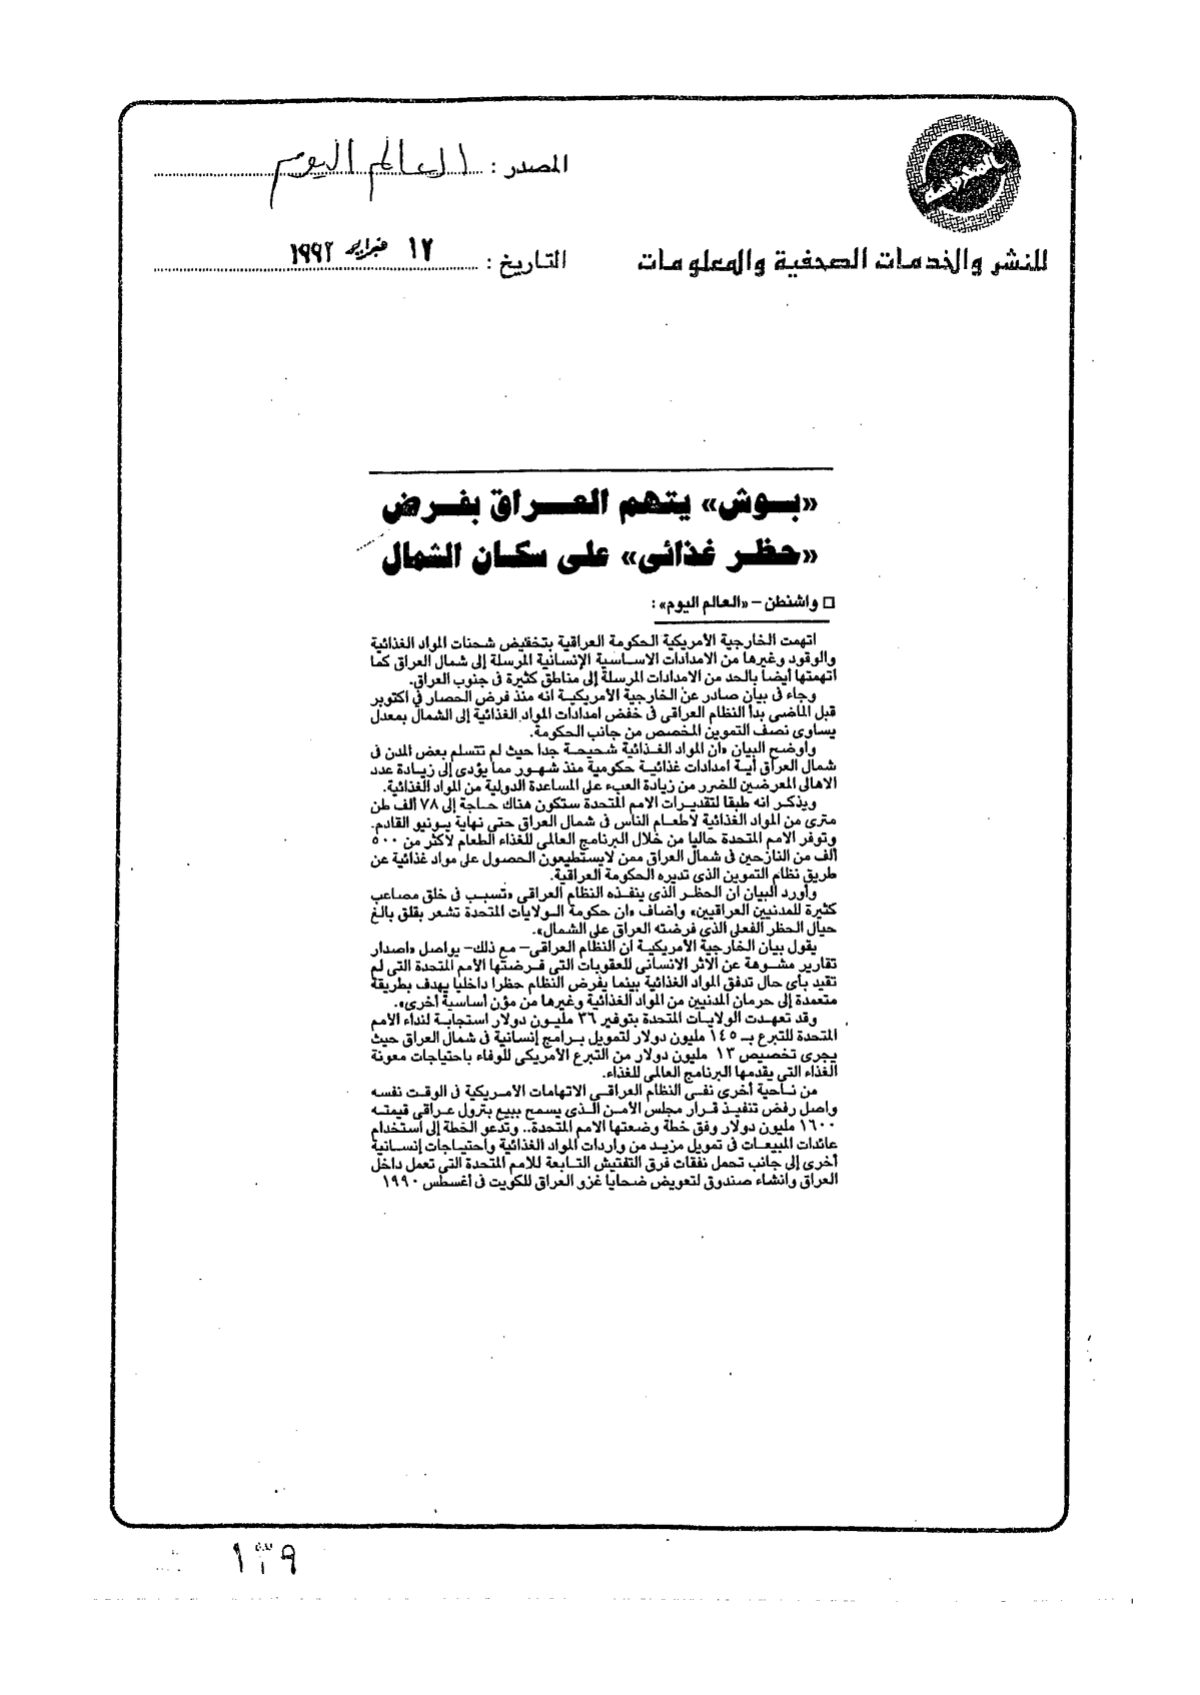 المصدر : العالم اليوم
للنشر والخدمات الصحفية والمعلومات
التاريخ : ١٧ فبراير ١٩٩٢
«بوش» يتهم العراق بفرض
«حظر غذائى» على سكان الشمال
□ واشنطن – «العالم اليوم» :
اتهمت الخارجية الأمريكية الحكومة العراقية بتخفيض شحنات المواد الغذائية
والوقود وغيرها من الامدادات الاساسية الإنسانية المرسلة إلى شمال العراق كما
اتهمتها أيضا بالحد من الامدادات المرسلة إلى مناطق كثيرة فى جنوب العراق.
وجاء فى بيان صادر عن الخارجية الأمريكية انه منذ فرض الحصار فى اكتوبر
قبل الماضى بدأ النظام العراقى فى خفض امدادات المواد الغذائية إلى الشمال بمعدل
يساوى نصف التموين المخصص من جانب الحكومة.
وأوضح البيان «ان المواد الغذائية شحيحة جدا حيث لم تتسلم بعض المدن فى
شمال العراق أية امدادات غذائية حكومية منذ شهور مما يؤدى إلى زيادة عدد
الاهالى المعرضين للضرر من زيادة العبء على المساعدة الدولية من المواد الغذائية.
ويذكر انه طبقا لتقديرات الامم المتحدة ستكون هناك حاجة إلى ٧٨ ألف طن
مترى من المواد الغذائية لاطعام الناس فى شمال العراق حتى نهاية يونيو القادم.
وتوفر الامم المتحدة حاليا من خلال البرنامج العالمى للغذاء الطعام لأكثر من ٥٠٠
ألف من النازحين فى شمال العراق ممن لايستطيعون الحصول على مواد غذائية عن
طريق نظام التموين الذى تديره الحكومة العراقية.
وأورد البيان ان الحظر الذى ينفذه النظام العراقى «تسبب فى خلق مصاعب
كثيرة للمدنيين العراقيين» وأضاف «ان حكومة الولايات المتحدة تشعر بقلق بالغ
حيال الحظر الفعلى الذى فرضته العراق على الشمال».
يقول بيان الخارجية الأمريكية ان النظام العراقى– مع ذلك– يواصل «اصدار
تقارير مشوهة عن الاثر الانسانى للعقوبات التى فرضتها الأمم المتحدة التى لم
تقيد بأى حال تدفق المواد الغذائية بينما يفرض النظام حظرا داخليا يهدف بطريقة
متعمدة إلى حرمان المدنيين من المواد الغذائية وغيرها من مؤن أساسية أخرى».
وقد تعهدت الولايات المتحدة بتوفير ٣٦ مليون دولار استجابة لنداء الأمم
المتحدة للتبرع بـ ١٤٥ مليون دولار لتمويل برامج إنسانية فى شمال العراق حيث
يجرى تخصيص ١٣ مليون دولار من التبرع الأمريكى للوفاء باحتياجات معونة
الغذاء التى يقدمها البرنامج العالمى للغذاء.
من ناحية أخرى نفى النظام العراقى الاتهامات الامريكية فى الوقت نفسه
واصل رفض تنفيذ قرار مجلس الأمن الذى يسمح ببيع بترول عراقى قيمته
١٦٠٠ مليون دولار وفق خطة وضعتها الامم المتحدة.. وتدعو الخطة إلى استخدام
عائدات المبيعات فى تمويل مزيد من واردات المواد الغذائية واحتياجات إنسانية
أخرى إلى جانب تحمل نفقات فرق التفتيش التابعة للأمم المتحدة التى تعمل داخل
العراق وانشاء صندوق لتعويض ضحايا غزو العراق للكويت فى أغسطس ١٩٩٠
١٣٩